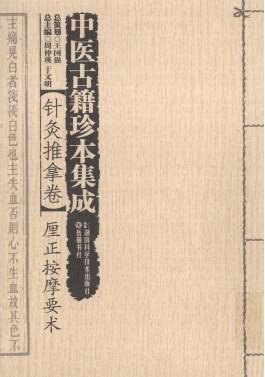 中医古籍珍本集成
总策划◎王国强
总主编◎周仲瑛 于文明
【针灸推拿卷】
厘正按摩要术
湖南科学技术出版社
岳麓书社
主痛晃白者淡淡白色也主失血否则心不生血故其色不